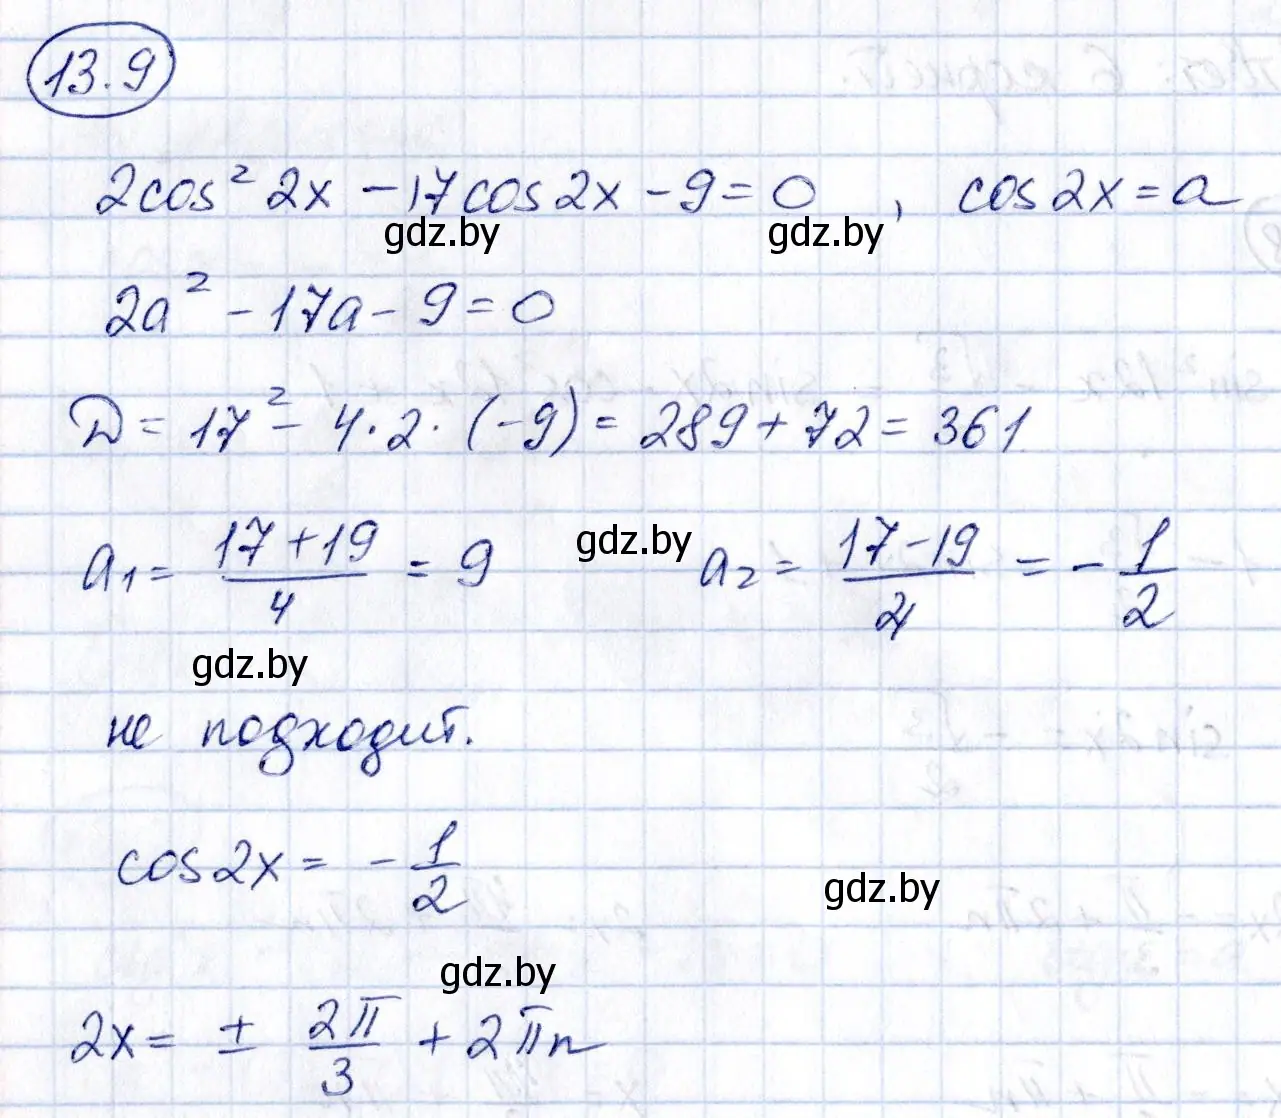 13.9
2cos² 2x − 17cos2x − 9 = 0 , cos2x = a
gdz.by gdz.by
2a² − 17a − 9 = 0
D = 17² − 4·2·(−9) = 289 + 72 = 361
a₁ = (17+19)/4 = 9 gdz.by a₂ = (17−19)/4 = −1/2
gdz.by
не подходит.
cos2x = −1/2
gdz.by
gdz.by
2x = ± 2π/3 + 2πn